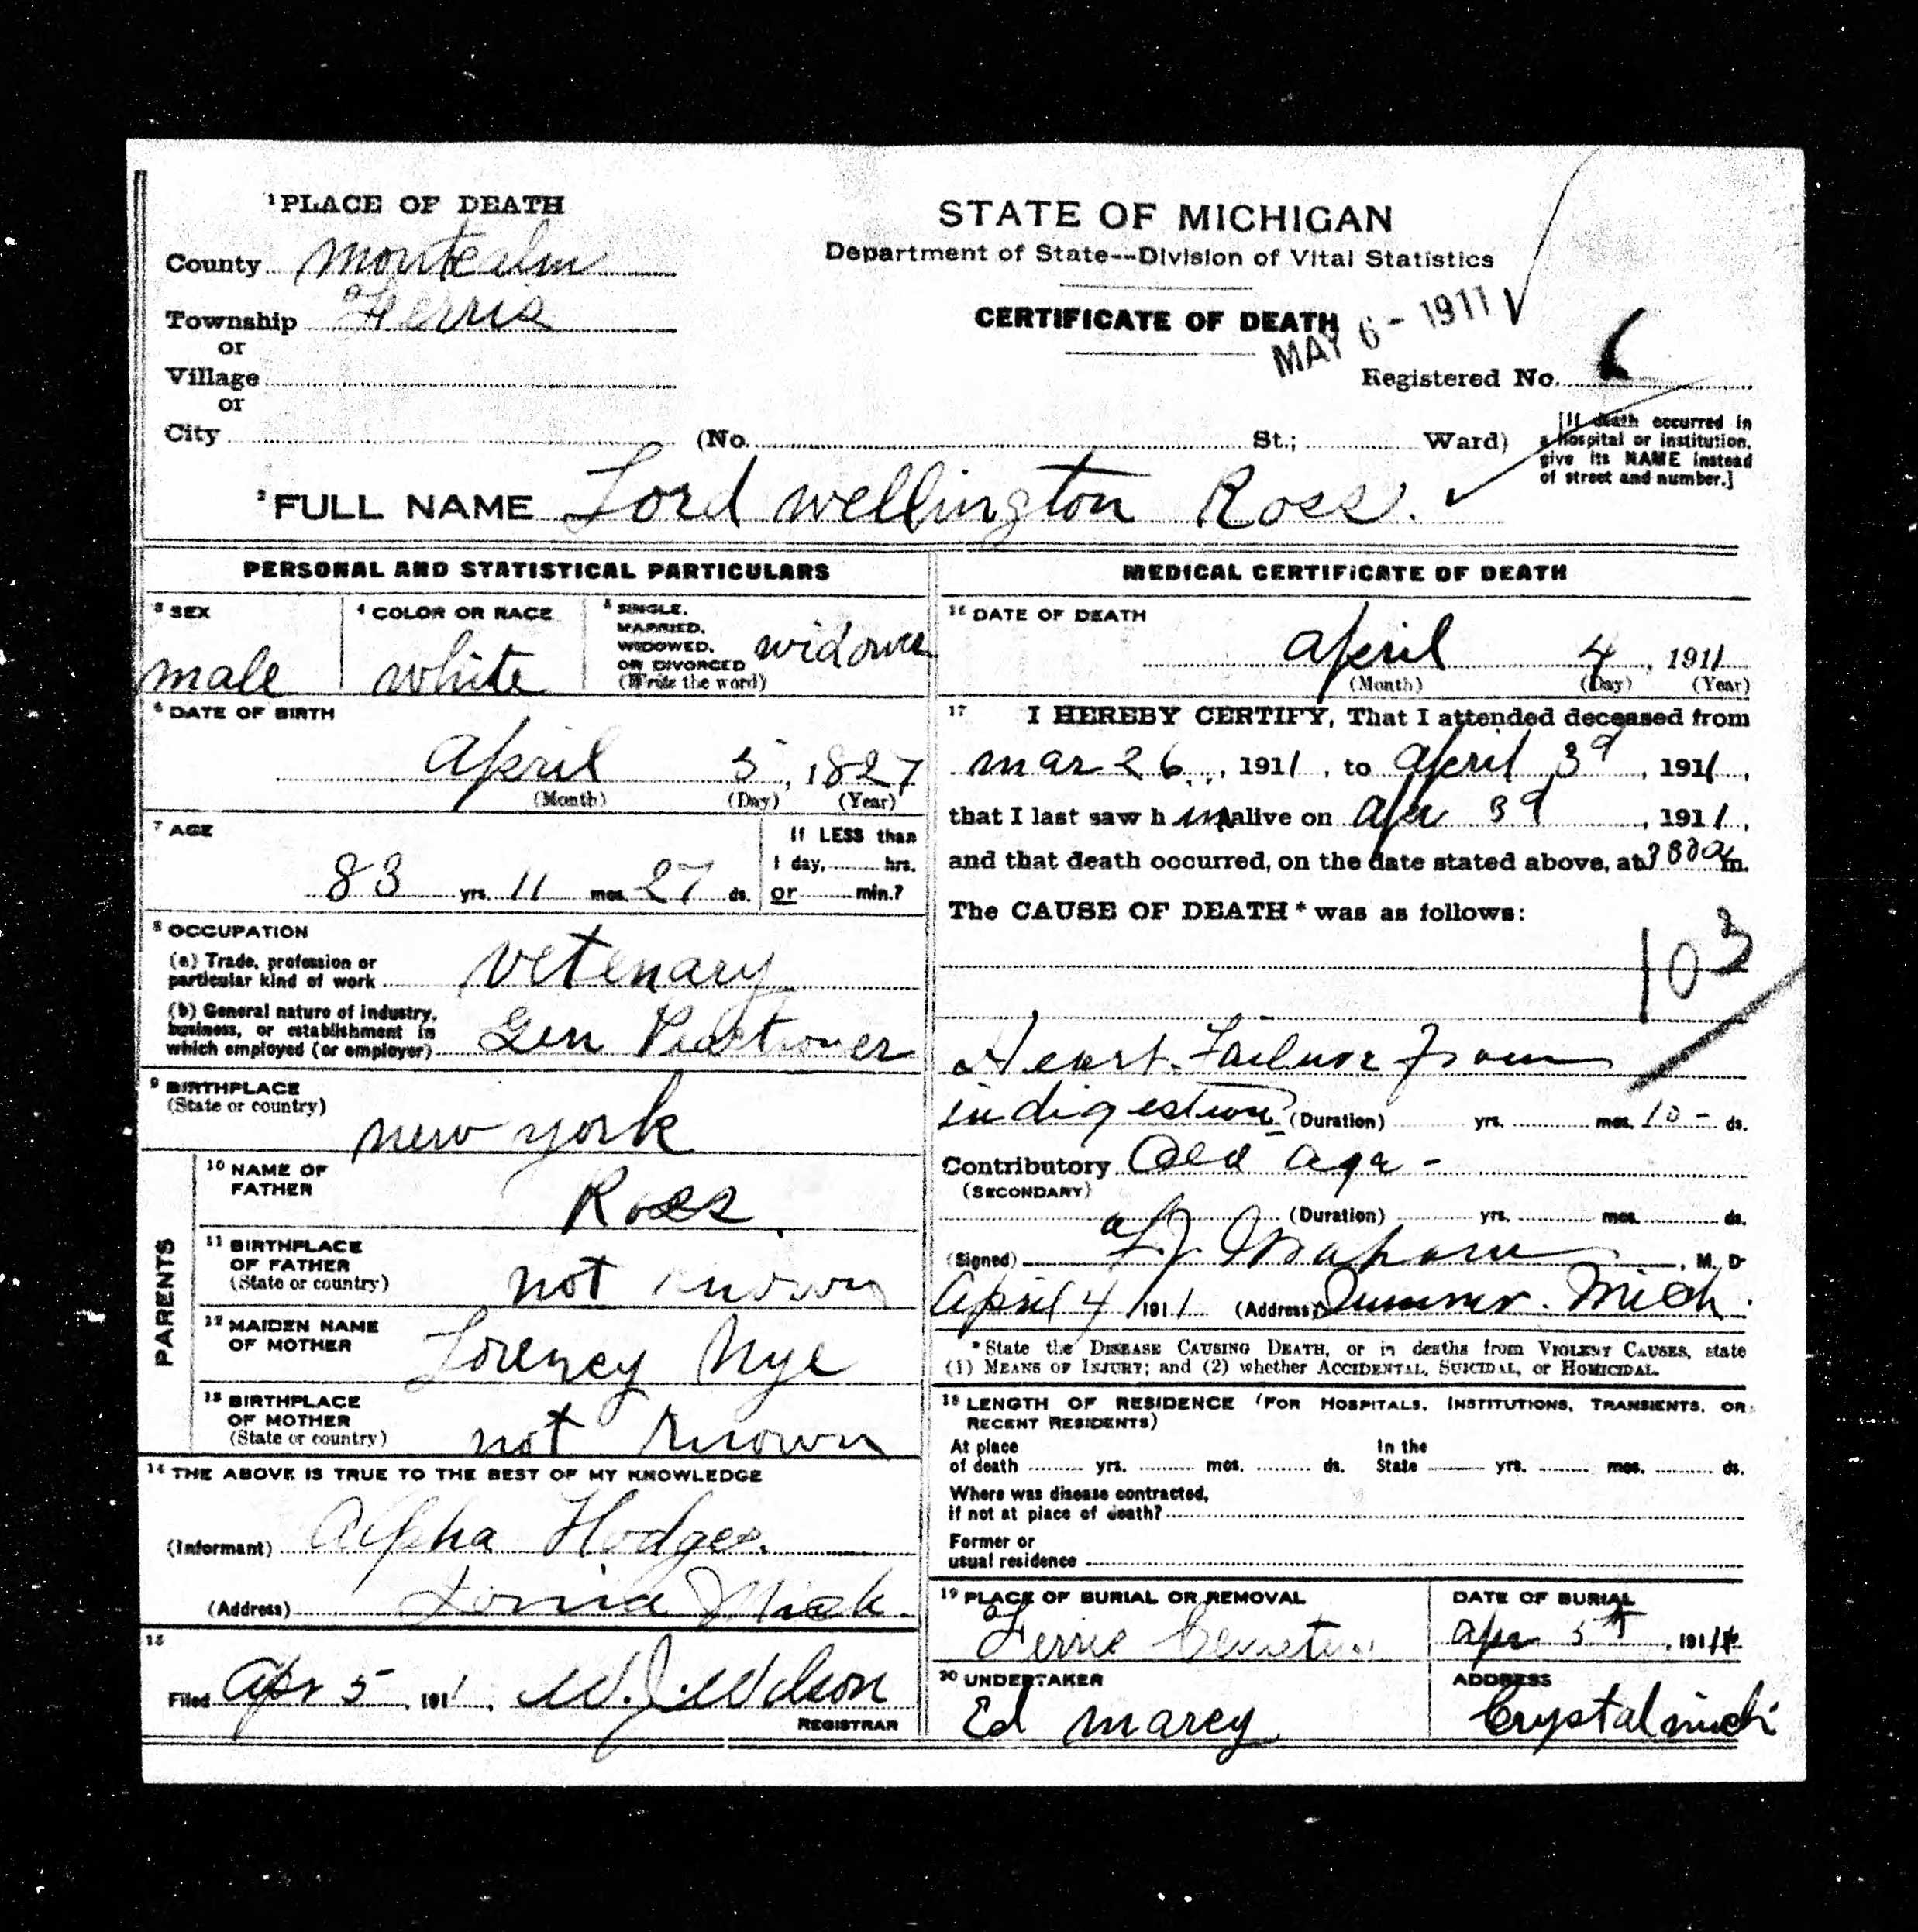 1 PLACE OF DEATH
County Montcalm
Township Ferris
or
Village
or
City (No. St.; Ward)
STATE OF MICHIGAN
Department of State--Division of Vital Statistics
CERTIFICATE OF DEATH
MAY 6 - 1911
Registered No. 6
[If death occurred in
a hospital or institution,
give its NAME instead
of street and number.]
2 FULL NAME Lord Wellington Ross.
PERSONAL AND STATISTICAL PARTICULARS
3 SEX
male
4 COLOR OR RACE
white
5 SINGLE,
MARRIED,
WIDOWED,
OR DIVORCED
(Write the word)
widower
6 DATE OF BIRTH
April 5, 1827
(Month) (Day) (Year)
7 AGE
83 yrs. 11 mos. 27 ds.
If LESS than
1 day, hrs.
or min.?
8 OCCUPATION
(a) Trade, profession or
particular kind of work vetenary
(b) General nature of industry,
business, or establishment in
which employed (or employer) Gen
9 BIRTHPLACE
(State or country)
new york
PARENTS
10 NAME OF
FATHER
Ross.
11 BIRTHPLACE
OF FATHER
(State or country)
not known
12 MAIDEN NAME
OF MOTHER
Lorency Nye
13 BIRTHPLACE
OF MOTHER
(State or country)
not known
14 THE ABOVE IS TRUE TO THE BEST OF MY KNOWLEDGE
(Informant) Alpha Hodges.
(Address) Ionia Mich.
15
Filed Apr 5, 1911, W. J. Wilson
REGISTRAR
MEDICAL CERTIFICATE OF DEATH
16 DATE OF DEATH
April 4, 1911
(Month) (Day) (Year)
17 I HEREBY CERTIFY, That I attended deceased from
mar 26, 1911, to April 3d, 1911,
that I last saw h im alive on Apr 3d, 1911,
and that death occurred, on the date stated above, at m.
The CAUSE OF DEATH* was as follows:
103
Heart Failure From
indigestion (Duration) yrs. mos. 10 - ds.
Contributory Old Age -
(SECONDARY)
(Duration) yrs. mos. ds.
(Signed) , M. D.
April 4 1911 (Address) Sumner. Mich.
*State the DISEASE CAUSING DEATH, or in deaths from VIOLENT CAUSES, state
(1) MEANS OF INJURY; and (2) whether ACCIDENTAL, SUICIDAL, or HOMICIDAL.
18 LENGTH OF RESIDENCE (FOR HOSPITALS, INSTITUTIONS, TRANSIENTS, OR
RECENT RESIDENTS)
At place
of death yrs. mos. ds.
In the
State yrs. mos. ds.
Where was disease contracted,
if not at place of death?
Former or
usual residence
19 PLACE OF BURIAL OR REMOVAL
Ferris Cemetery
DATE OF BURIAL
Apr 5th, 1911
20 UNDERTAKER
Ed Marcy
ADDRESS
Crystal mich